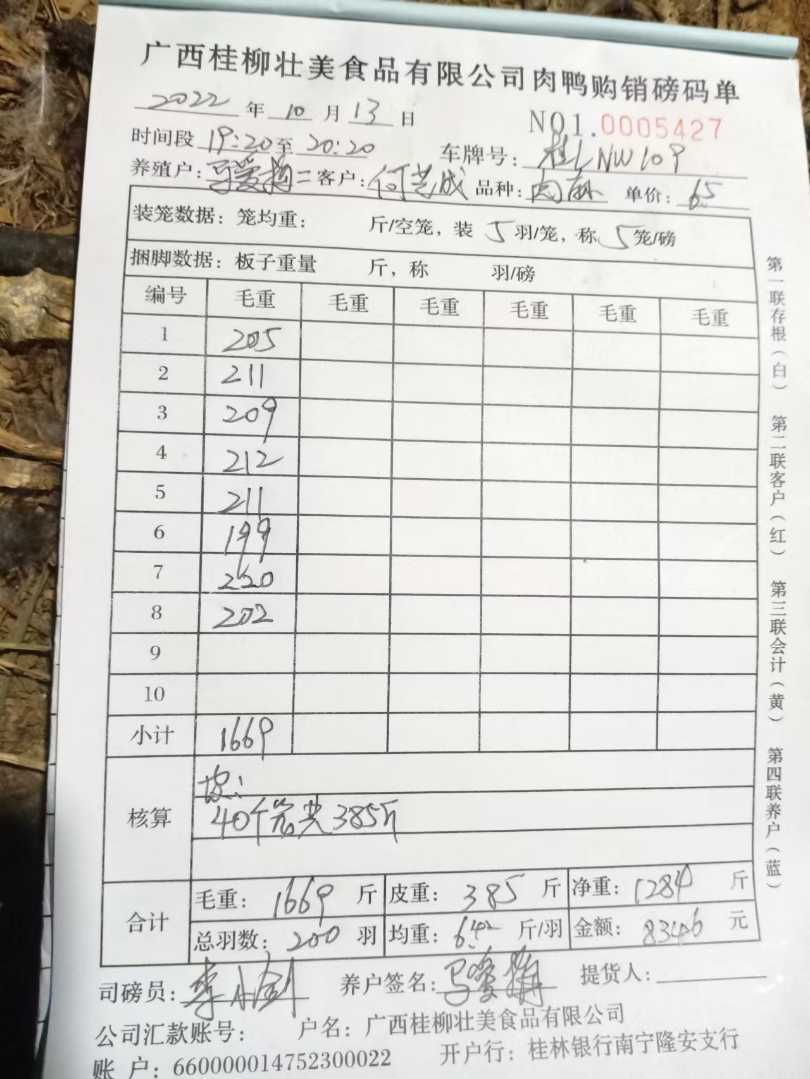 广西桂柳壮美食品有限公司肉鸭购销磅码单
2022 年 10 月 13 日 NO1.0005427
时间段 19:20 至 20:20 车牌号: 桂LNW109
养殖户: 马爱梅二 客户: 何 成 品种: 肉麻 单价: 6.5
装笼数据: 笼均重: 斤/空笼, 装 5 羽/笼, 称 5 笼/磅
捆脚数据: 板子重量 斤, 称 羽/磅
编号 毛重 毛重 毛重 毛重 毛重 毛重
1 205
2 211
3 209
4 212
5 211
6 199
7 220
8 202
9
10
小计 1669
核算
40个笼共385斤
合计
毛重: 1669 斤 皮重: 385 斤 净重: 1284 斤
总羽数: 200 羽 均重: 6.42 斤/羽 金额: 8346 元
司磅员: 李小剑 养户签名: 马爱梅 提货人:
公司汇款账号: 户名: 广西桂柳壮美食品有限公司
账 户: 660000014752300022 开户行: 桂林银行南宁隆安支行
第一联存根(白) 第二联客户(红) 第三联会计(黄) 第四联养户(蓝)